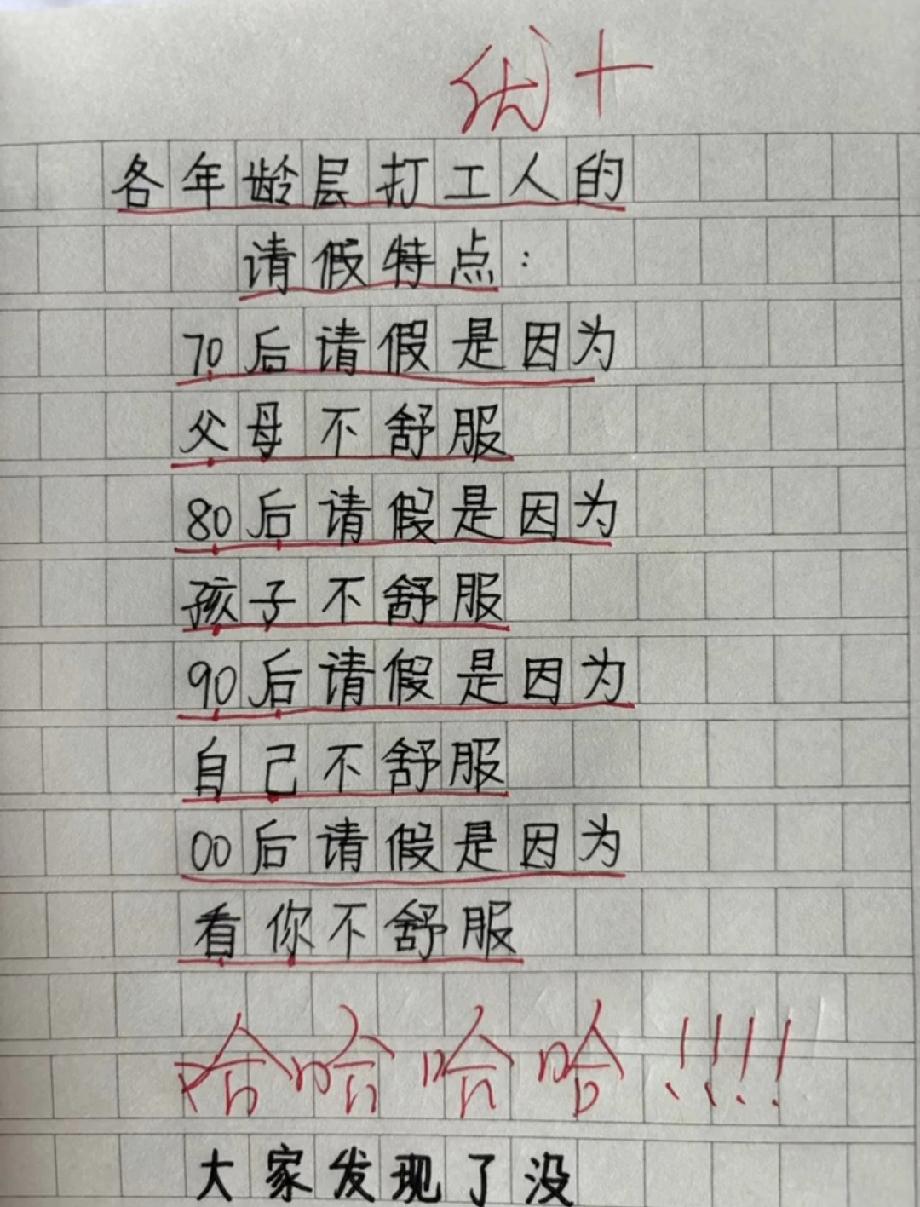 优+
各年龄层打工人的
请假特点:
70后请假是因为
父母不舒服
80后请假是因为
孩子不舒服
90后请假是因为
自己不舒服
00后请假是因为
看你不舒服
哈哈哈哈!!!!
大家发现了没